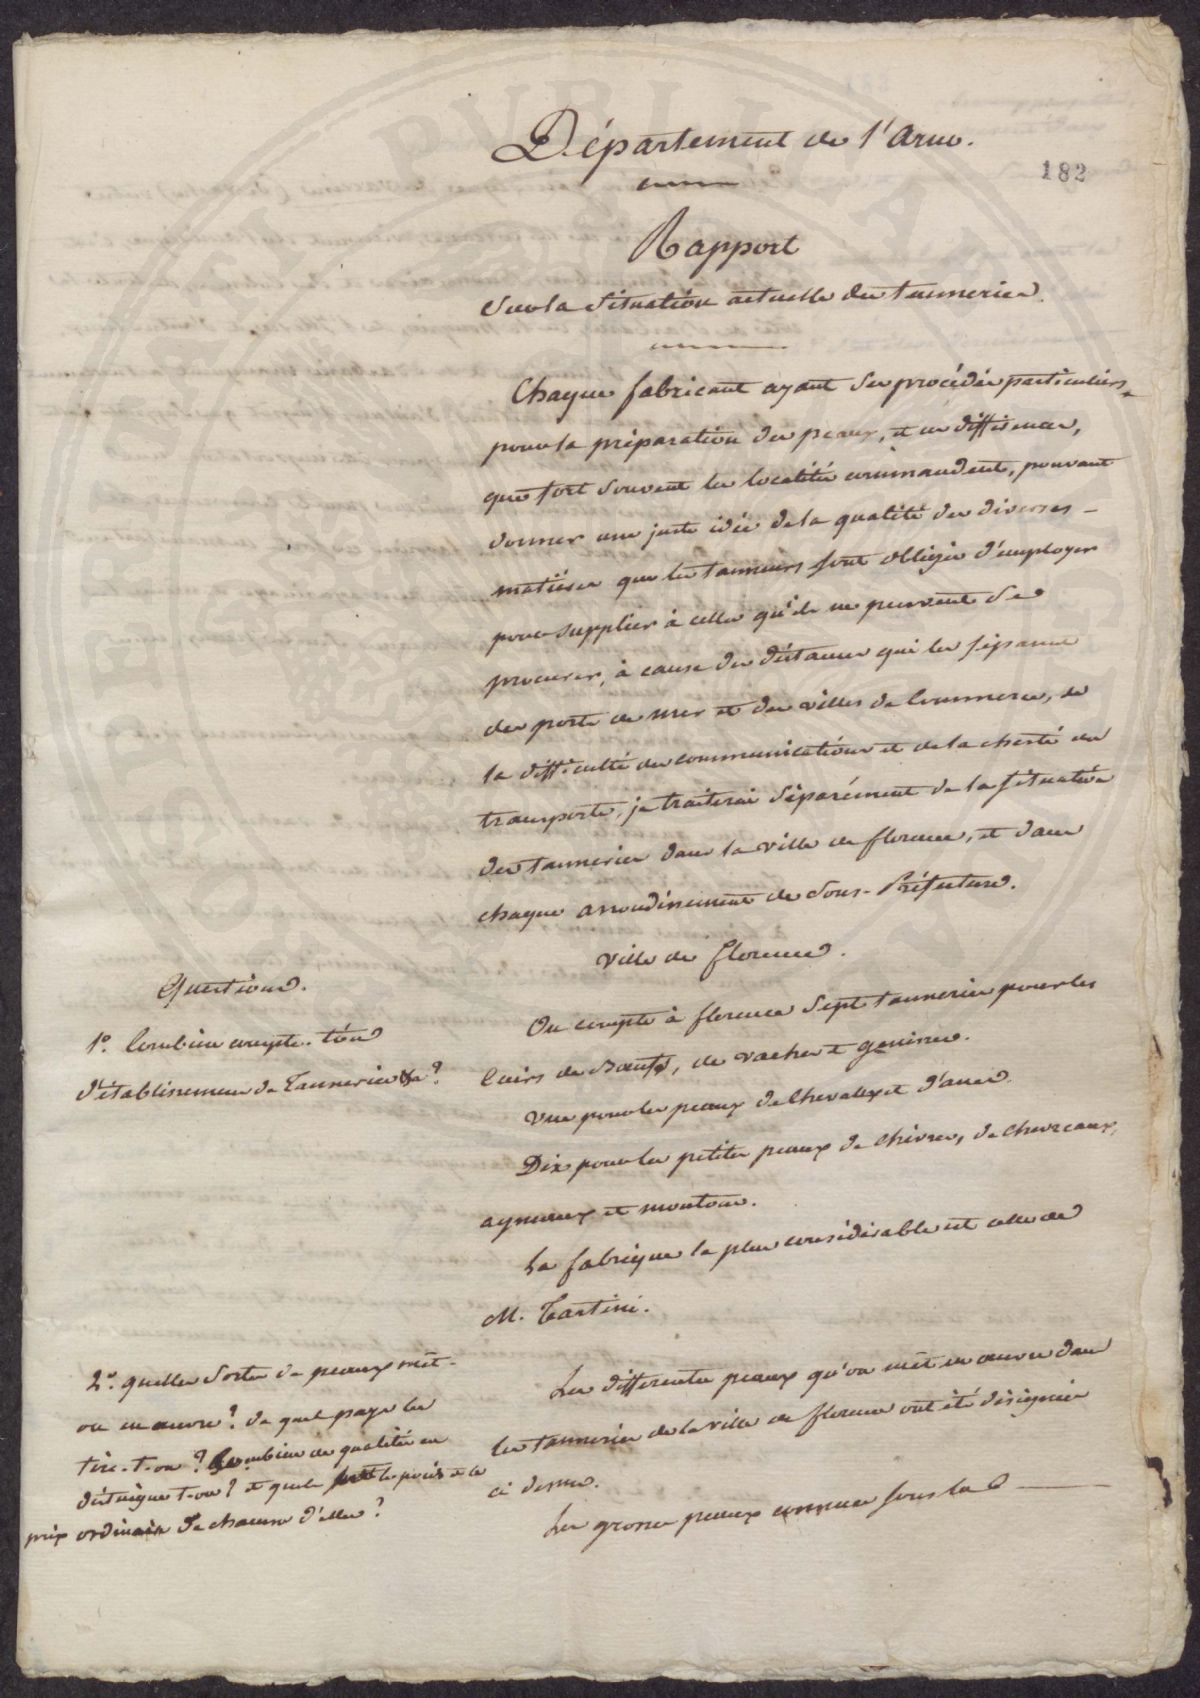 Département de l'Arno.
182
Rapport
Sur la Situation actuelle des tanneries.
Chaque fabricant ayant ses procédés particuliers
pour la préparation des peaux, et ces différences,
que fort souvent les localités commandent, pouvant
donner une juste idée de la qualité des diverses
matières que les tanneurs sont obligés d'employer
pour suppléer à celles qu'ils ne peuvent se
procurer, à cause des distances qui les séparent
des ports de mer et des villes de Commerce, de
la difficulté des communications et de la cherté des
transports, je traiterai séparément de la situation
des tanneries dans la ville de florence, et dans
chaque arrondissement de Sous-Préfecture.
Ville de florence.
Questions.
1º. Combien compte-t'on
d'établissemens de Tanneries &a?
On compte à florence Sept tanneries pour les
Cuirs de Bœufs, de vaches et genisses.
Une pour les peaux de Chevaux et d'anes.
Dix pour les petites peaux de chèvres, de chevreaux,
agneaux et moutons.
La fabrique la plus considérable est celle de
M. Tartini.
2º. quelles sortes de peaux met-
on en œuvre? de quel pays les
tire-t-on? Combien de qualités en
distingue t-on? et quels sont le poids et le
prix ordinaire de chacune d'elles?
Les differentes peaux qu'on met en œuvre dans
les tanneries de la ville de florence ont été désignées
ci dessus.
Les grosses peaux connues sous la D